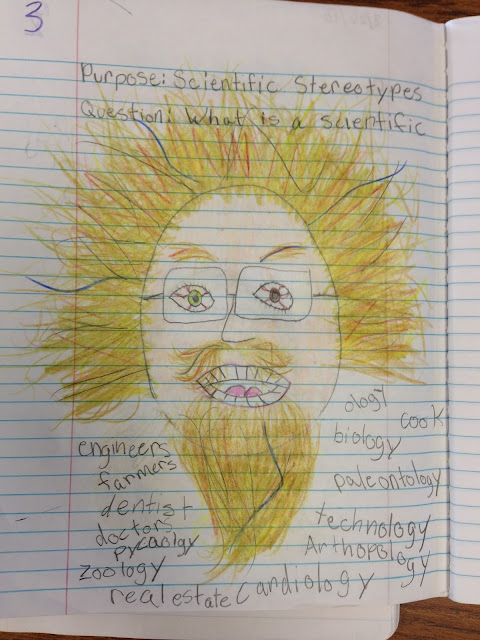 3
Purpose: Scientific Stereotypes
Question: What is a scientific
engineers
farmers
dentist
doctors
pycaolgy
zoology
real estate
ology
cook
biology
paleontology
technology
Arthopology
Candiology